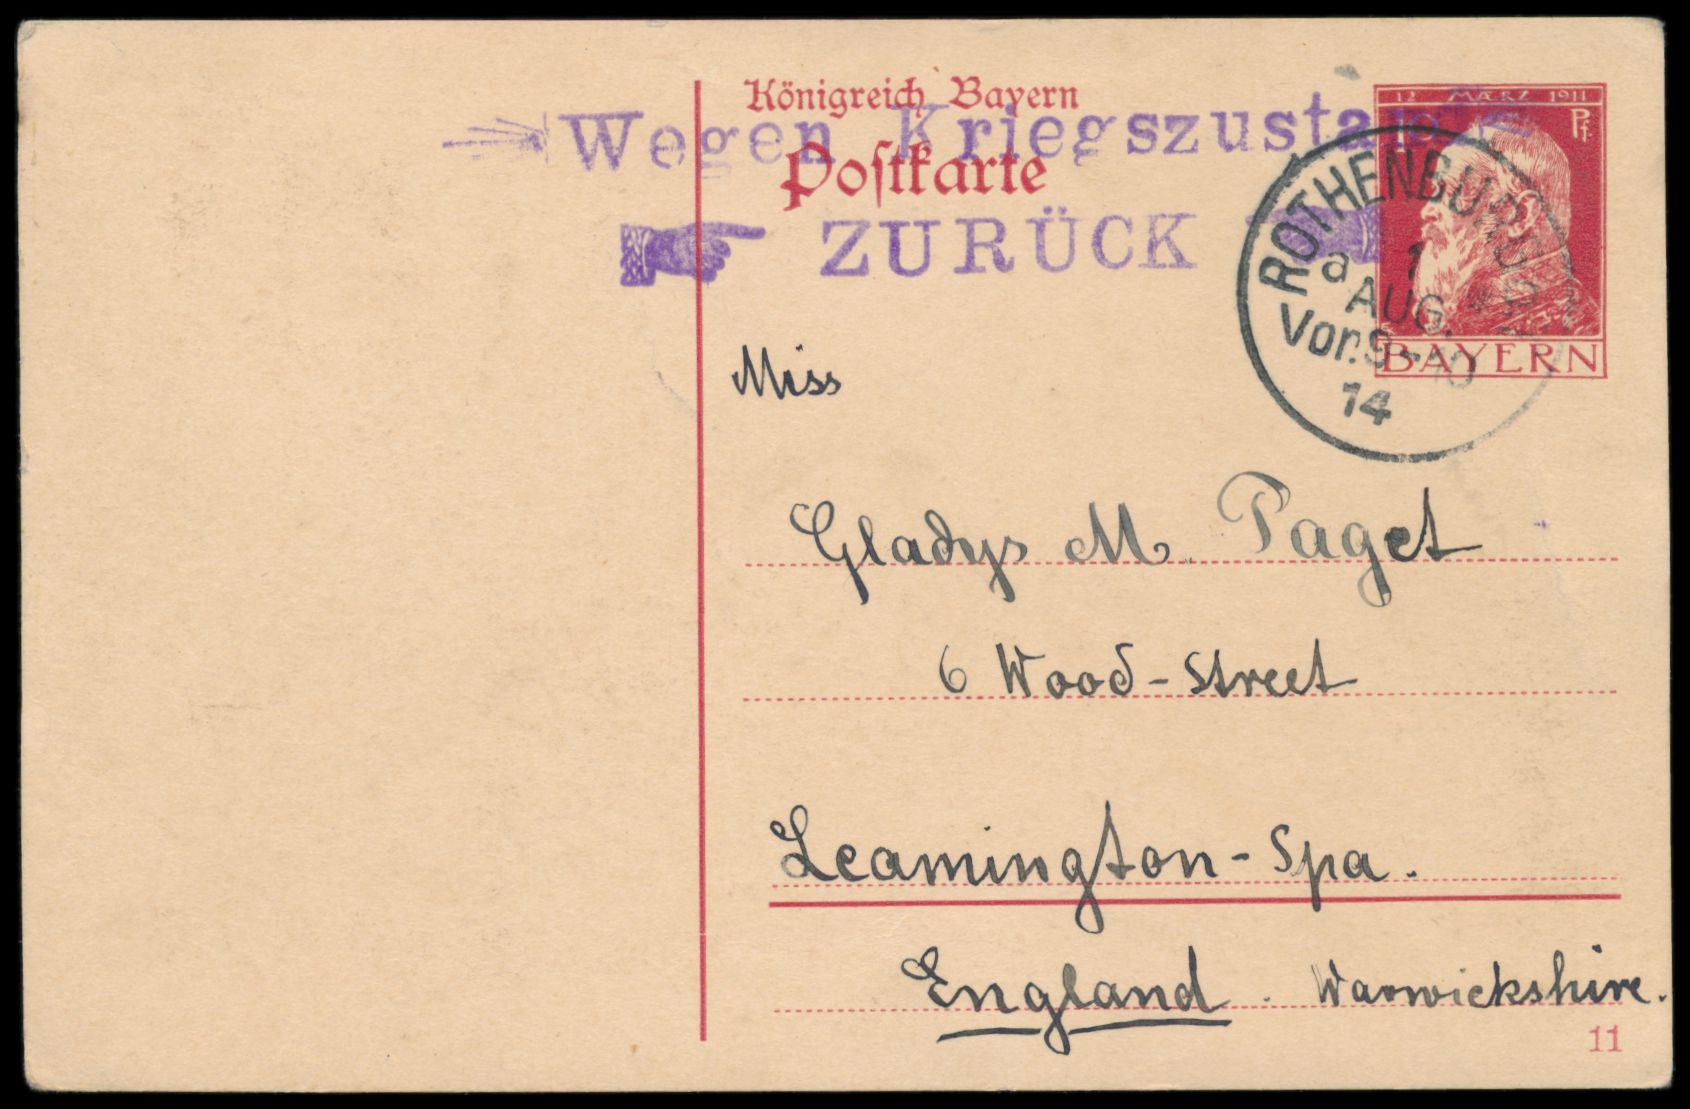 Königreich Bayern
Wegen Kriegszustande
Postkarte
ZURÜCK
12 MÆRZ 1911
Pf.
BAYERN
ROTHENBURG
a 1
AUG.
Vor. 9-10
14
Miss
Gladys M. Paget
6 Wood-Street
Leamington-Spa.
England. Warwickshire.
11